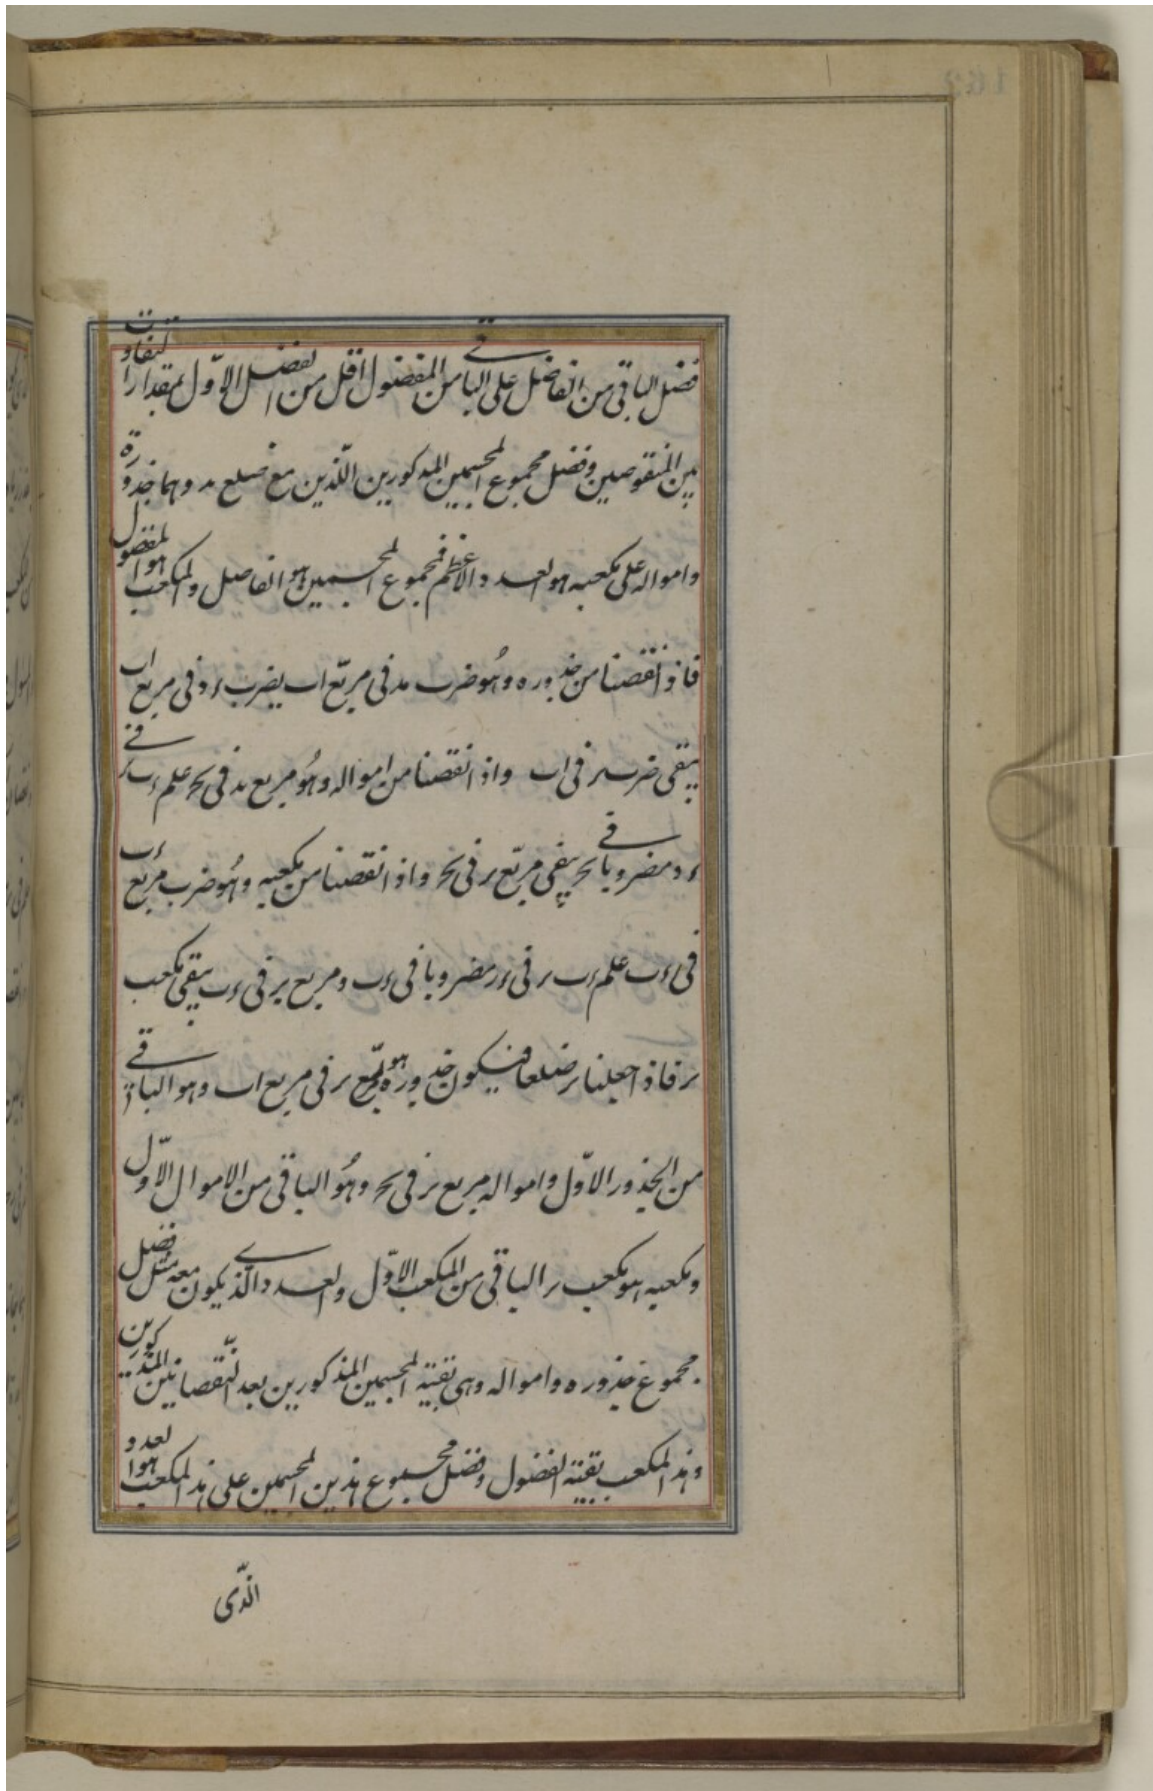 فضل الباقي من الفاضل على الباقي من المفضول اقل من الفضل الاوّل بمقدار التفاوت
بين المنقوصين وفضل مجموع المجسمين المذكورين اللّذين مع ضلع مد وهما جذوره
وامواله على مكعبه هو العدد والاعظم فمجموع المجسمين هو الفاضل والمكعب هو المفضول
فاذ انقصنا من جذوره وهُو ضرب مد في مربّع اب يضرب ءد في مربع اب
يبقى ضرب ىر في اب واذ انقصنا من امواله وهُو مربع مد في ىح علم ءب في
ءد مضروبا في ىح يبقى مربّع ىر في ىح واذ انقصنا من مكعبه وهُو ضرب مربع ءب
في ءب علم ءب ىر في ءر مضروبا في ءب ومربع ىر في ءب يبقى مكعب
ىر فاذ اجعلنا ىر ضلعا فيكون جذوره هو ىر في مربع اب وهو الباقي
من الجذور الاوّل وامواله مربع ىر في ىح وهُو الباقي من الاموال الاوّل
ومكعبه هو مكعب ىر الباقي من المكعب الاوّل والعدد الّذي يكون معه مثل فضل
مجموع جذوره وامواله وهي بقيّة المجسمين المذكورين بعد النّقصانين المذكورين
وهذا المكعب بقيّة المفضول وفضل مجموع هذين المجسمين على هذا المكعب هو العدد
الذّى